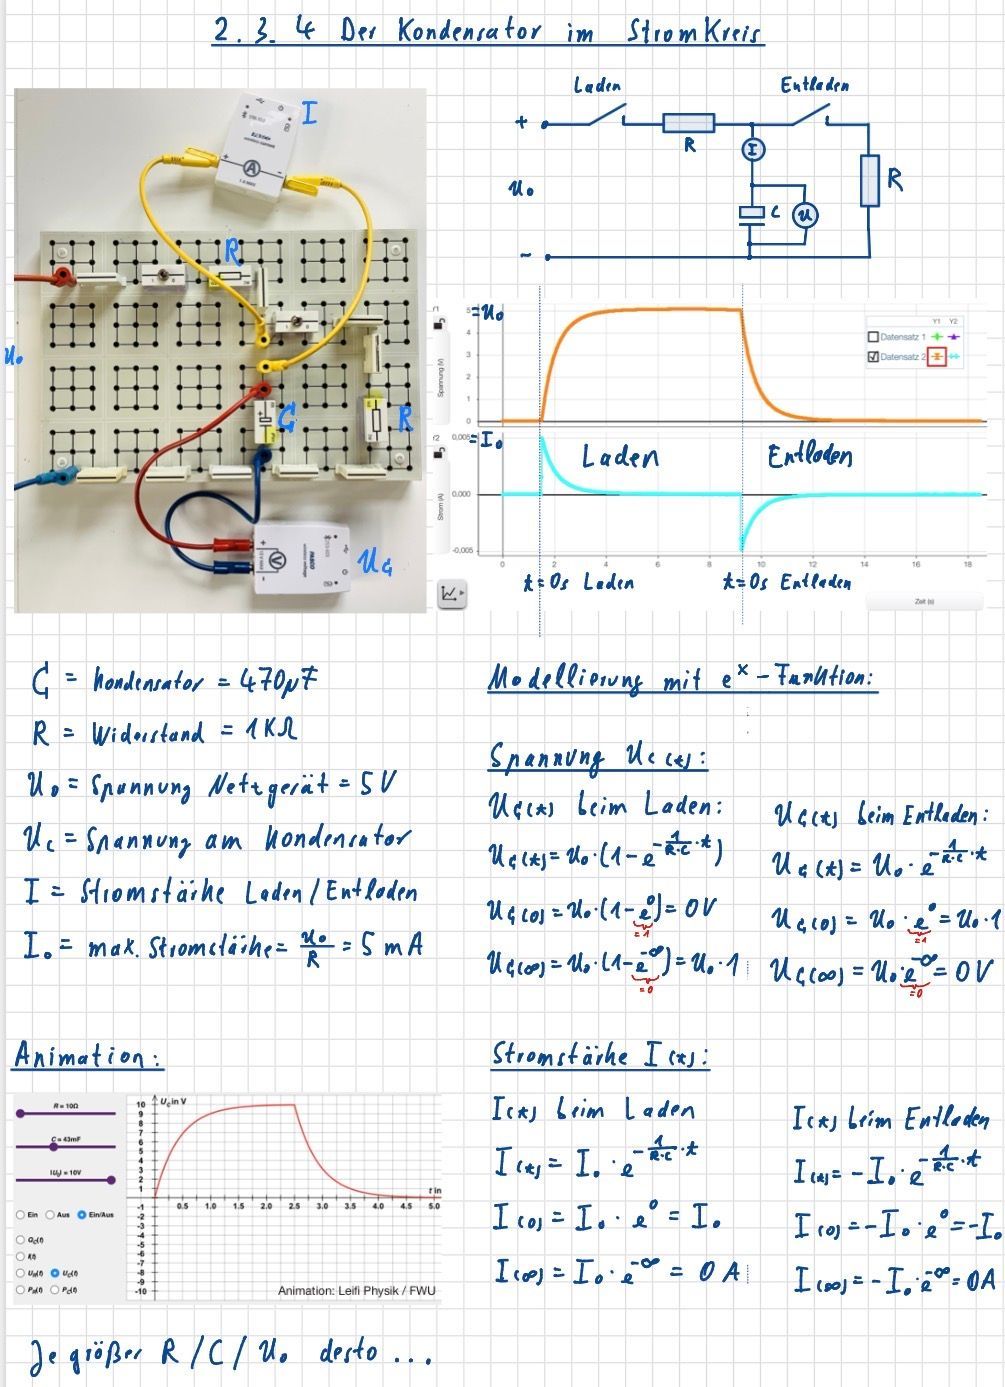 2.3.4 Der Kondensator im Stromkreis
I
A
R
U₀
C
R
V
U_C
Laden
Entladen
+
R
I
U₀
C
U
R
~
=U₀
Spannung (V)
5
4
3
2
1
0
Y1 Y2
Datensatz 1
Datensatz 2
0,005
=I₀
Strom (A)
0,000
-0,005
Laden
Entladen
0 2 4 6 8 10 12 14 16 18
t=0s Laden
t=0s Entladen
Zeit (s)
C = Kondensator = 470µF
R = Widerstand = 1KΩ
U₀ = Spannung Netzgerät = 5V
U_C = Spannung am Kondensator
I = Stromstärke Laden/Entladen
I₀ = max. Stromstärke = U₀/R = 5 mA
Modellierung mit eˣ-Funktion:
Spannung U_C(t):
U_C(t) beim Laden:
U_C(t) = U₀·(1-e^(-1/(R·C)·t))
U_C(0) = U₀·(1-e⁰) = 0V
=1
U_C(∞) = U₀·(1-e^-∞) = U₀·1
=0
U_C(t) beim Entladen:
U_C(t) = U₀·e^(-1/(R·C)·t)
U_C(0) = U₀·e⁰ = U₀·1
=1
U_C(∞) = U₀·e^-∞ = 0V
=0
Animation:
R = 10Ω
C = 43mF
|U₀| = 10V
Ein Aus Ein/Aus
Q_C(t)
I(t)
U_R(t) U_C(t)
P_R(t) P_C(t)
U_C in V
10
9
8
7
6
5
4
3
2
1
-1
-2
-3
-4
-5
-6
-7
-8
-9
-10
0.5 1.0 1.5 2.0 2.5 3.0 3.5 4.0 4.5 5.0
t in
Animation: Leifi Physik / FWU
Je größer R/C/U₀ desto ...
Stromstärke I(t):
I(t) beim Laden
I(t) = I₀·e^(-1/(R·C)·t)
I(0) = I₀·e⁰ = I₀
I(∞) = I₀·e^-∞ = 0A
I(t) beim Entladen
I(t) = -I₀·e^(-1/(R·C)·t)
I(0) = -I₀·e⁰ = -I₀
I(∞) = -I₀·e^-∞ = 0A